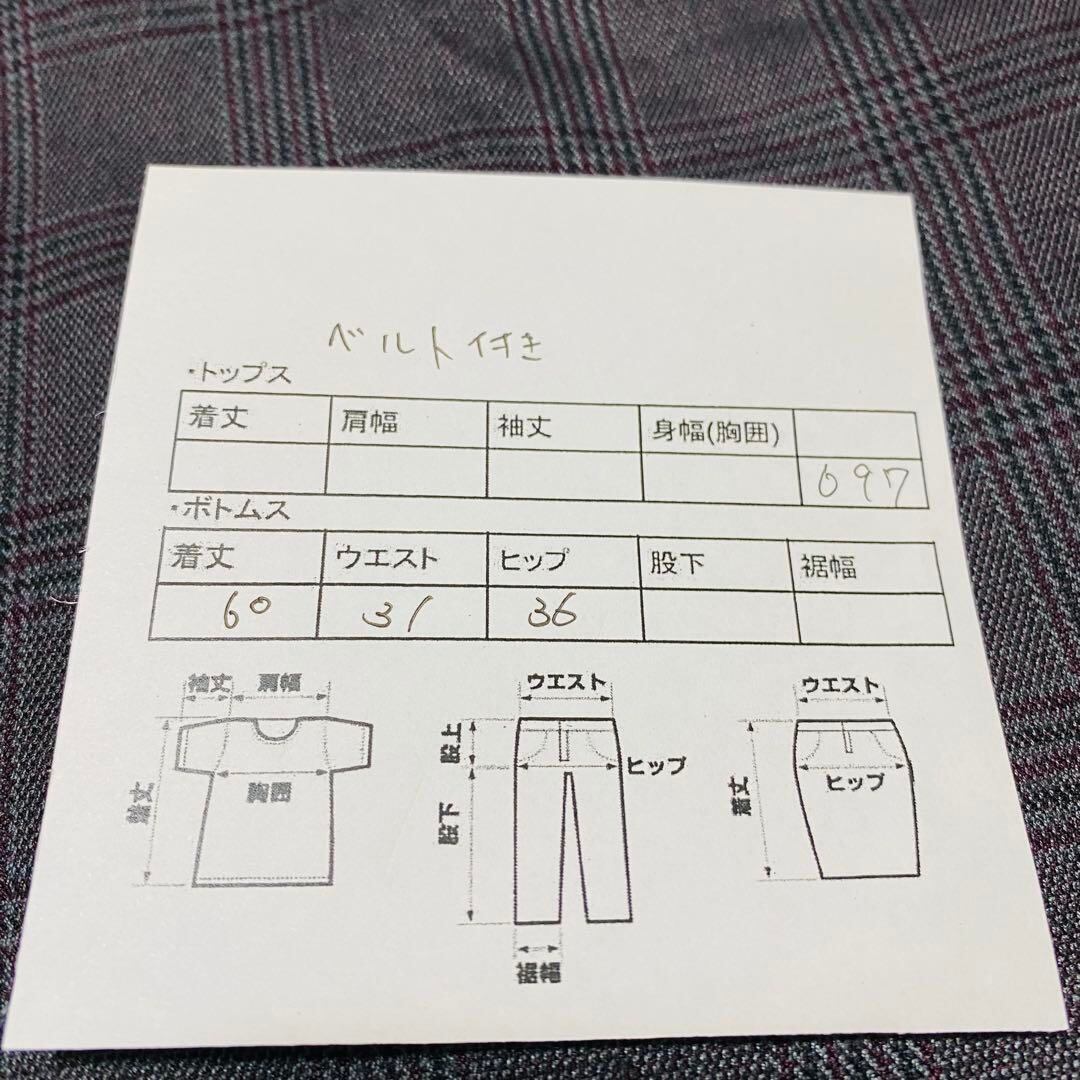 ベルト付き
・トップス
着丈 肩幅 袖丈 身幅(胸囲)
697
・ボトムス
着丈 ウエスト ヒップ 股下 裾幅
60 31 36
袖丈 肩幅
着丈
胸囲
ウエスト
股上
ヒップ
股下
裾幅
ウエスト
着丈
ヒップ